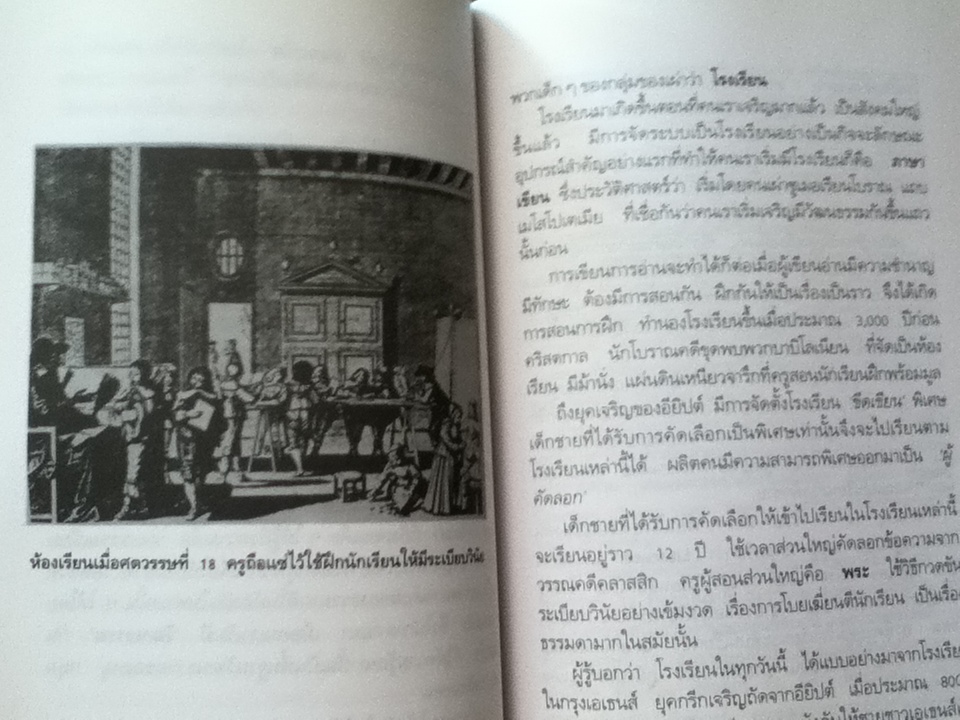 ห้องเรียนเมื่อศตวรรษที่ 18 ครูถือแซ่ไว้ใช้ฝึกนักเรียนให้มีระเบียบวินัย
พวกเด็ก ๆ ของกลุ่มของเผ่าว่า โรงเรียน
โรงเรียนมาเกิดขึ้นตอนที่คนเราเจริญมากแล้ว เป็นสังคมใหญ่
ขึ้นแล้ว มีการจัดระบบเป็นโรงเรียนอย่างเป็นกิจจะลักษณะ
อุปกรณ์สำคัญอย่างแรกที่ทำให้คนเราเริ่มมีโรงเรียนก็คือ ภาษา
เขียน ซึ่งประวัติศาสตร์ว่า เริ่มโดยคนเผ่าซูเมอเรียนโบราณ แถบ
เมโสโปเตเมีย ที่เชื่อกันว่าคนเราเริ่มเจริญมีวัฒนธรรมกันขึ้นแถว
นั้นก่อน
การเขียนการอ่านจะทำได้ก็ต่อเมื่อผู้เขียนอ่านมีความชำนาญ
มีทักษะ ต้องมีการสอนกัน ฝึกกันให้เป็นเรื่องเป็นราว จึงได้เกิด
การสอนการฝึก ทำนองโรงเรียนขึ้นเมื่อประมาณ 3,000 ปีก่อน
คริสตกาล นักโบราณคดีขุดพบพวกบาบิโลเนียน ที่จัดเป็นห้อง
เรียน มีม้านั่ง แผ่นดินเหนียวจารึกที่ครูสอนนักเรียนฝึกพร้อมมูล
ถึงยุคเจริญของอียิปต์ มีการจัดตั้งโรงเรียน 'ขีดเขียน' พิเศษ
เด็กชายที่ได้รับการคัดเลือกเป็นพิเศษเท่านั้นจึงจะไปเรียนตาม
โรงเรียนเหล่านี้ได้ ผลิตคนมีความสามารถพิเศษออกมาเป็น 'ผู้
คัดลอก'
เด็กชายที่ได้รับการคัดเลือกให้เข้าไปเรียนในโรงเรียนเหล่านี้
จะเรียนอยู่ราว 12 ปี ใช้เวลาส่วนใหญ่คัดลอกข้อความจาก
วรรณคดีคลาสสิก ครูผู้สอนส่วนใหญ่คือ พระ ใช้วิธีกวดขัน
ระเบียบวินัยอย่างเข้มงวด เรื่องการโบยเฆี่ยนตีนักเรียน เป็นเรื่อง
ธรรมดามากในสมัยนั้น
ผู้รู้บอกว่า โรงเรียนในทุกวันนี้ ได้แบบอย่างมาจากโรงเรียน
ในกรุงเอเธนส์ ยุคกรีกเจริญถัดจากอียิปต์ เมื่อประมาณ 800
ให้ชายชาวเอเธนส์